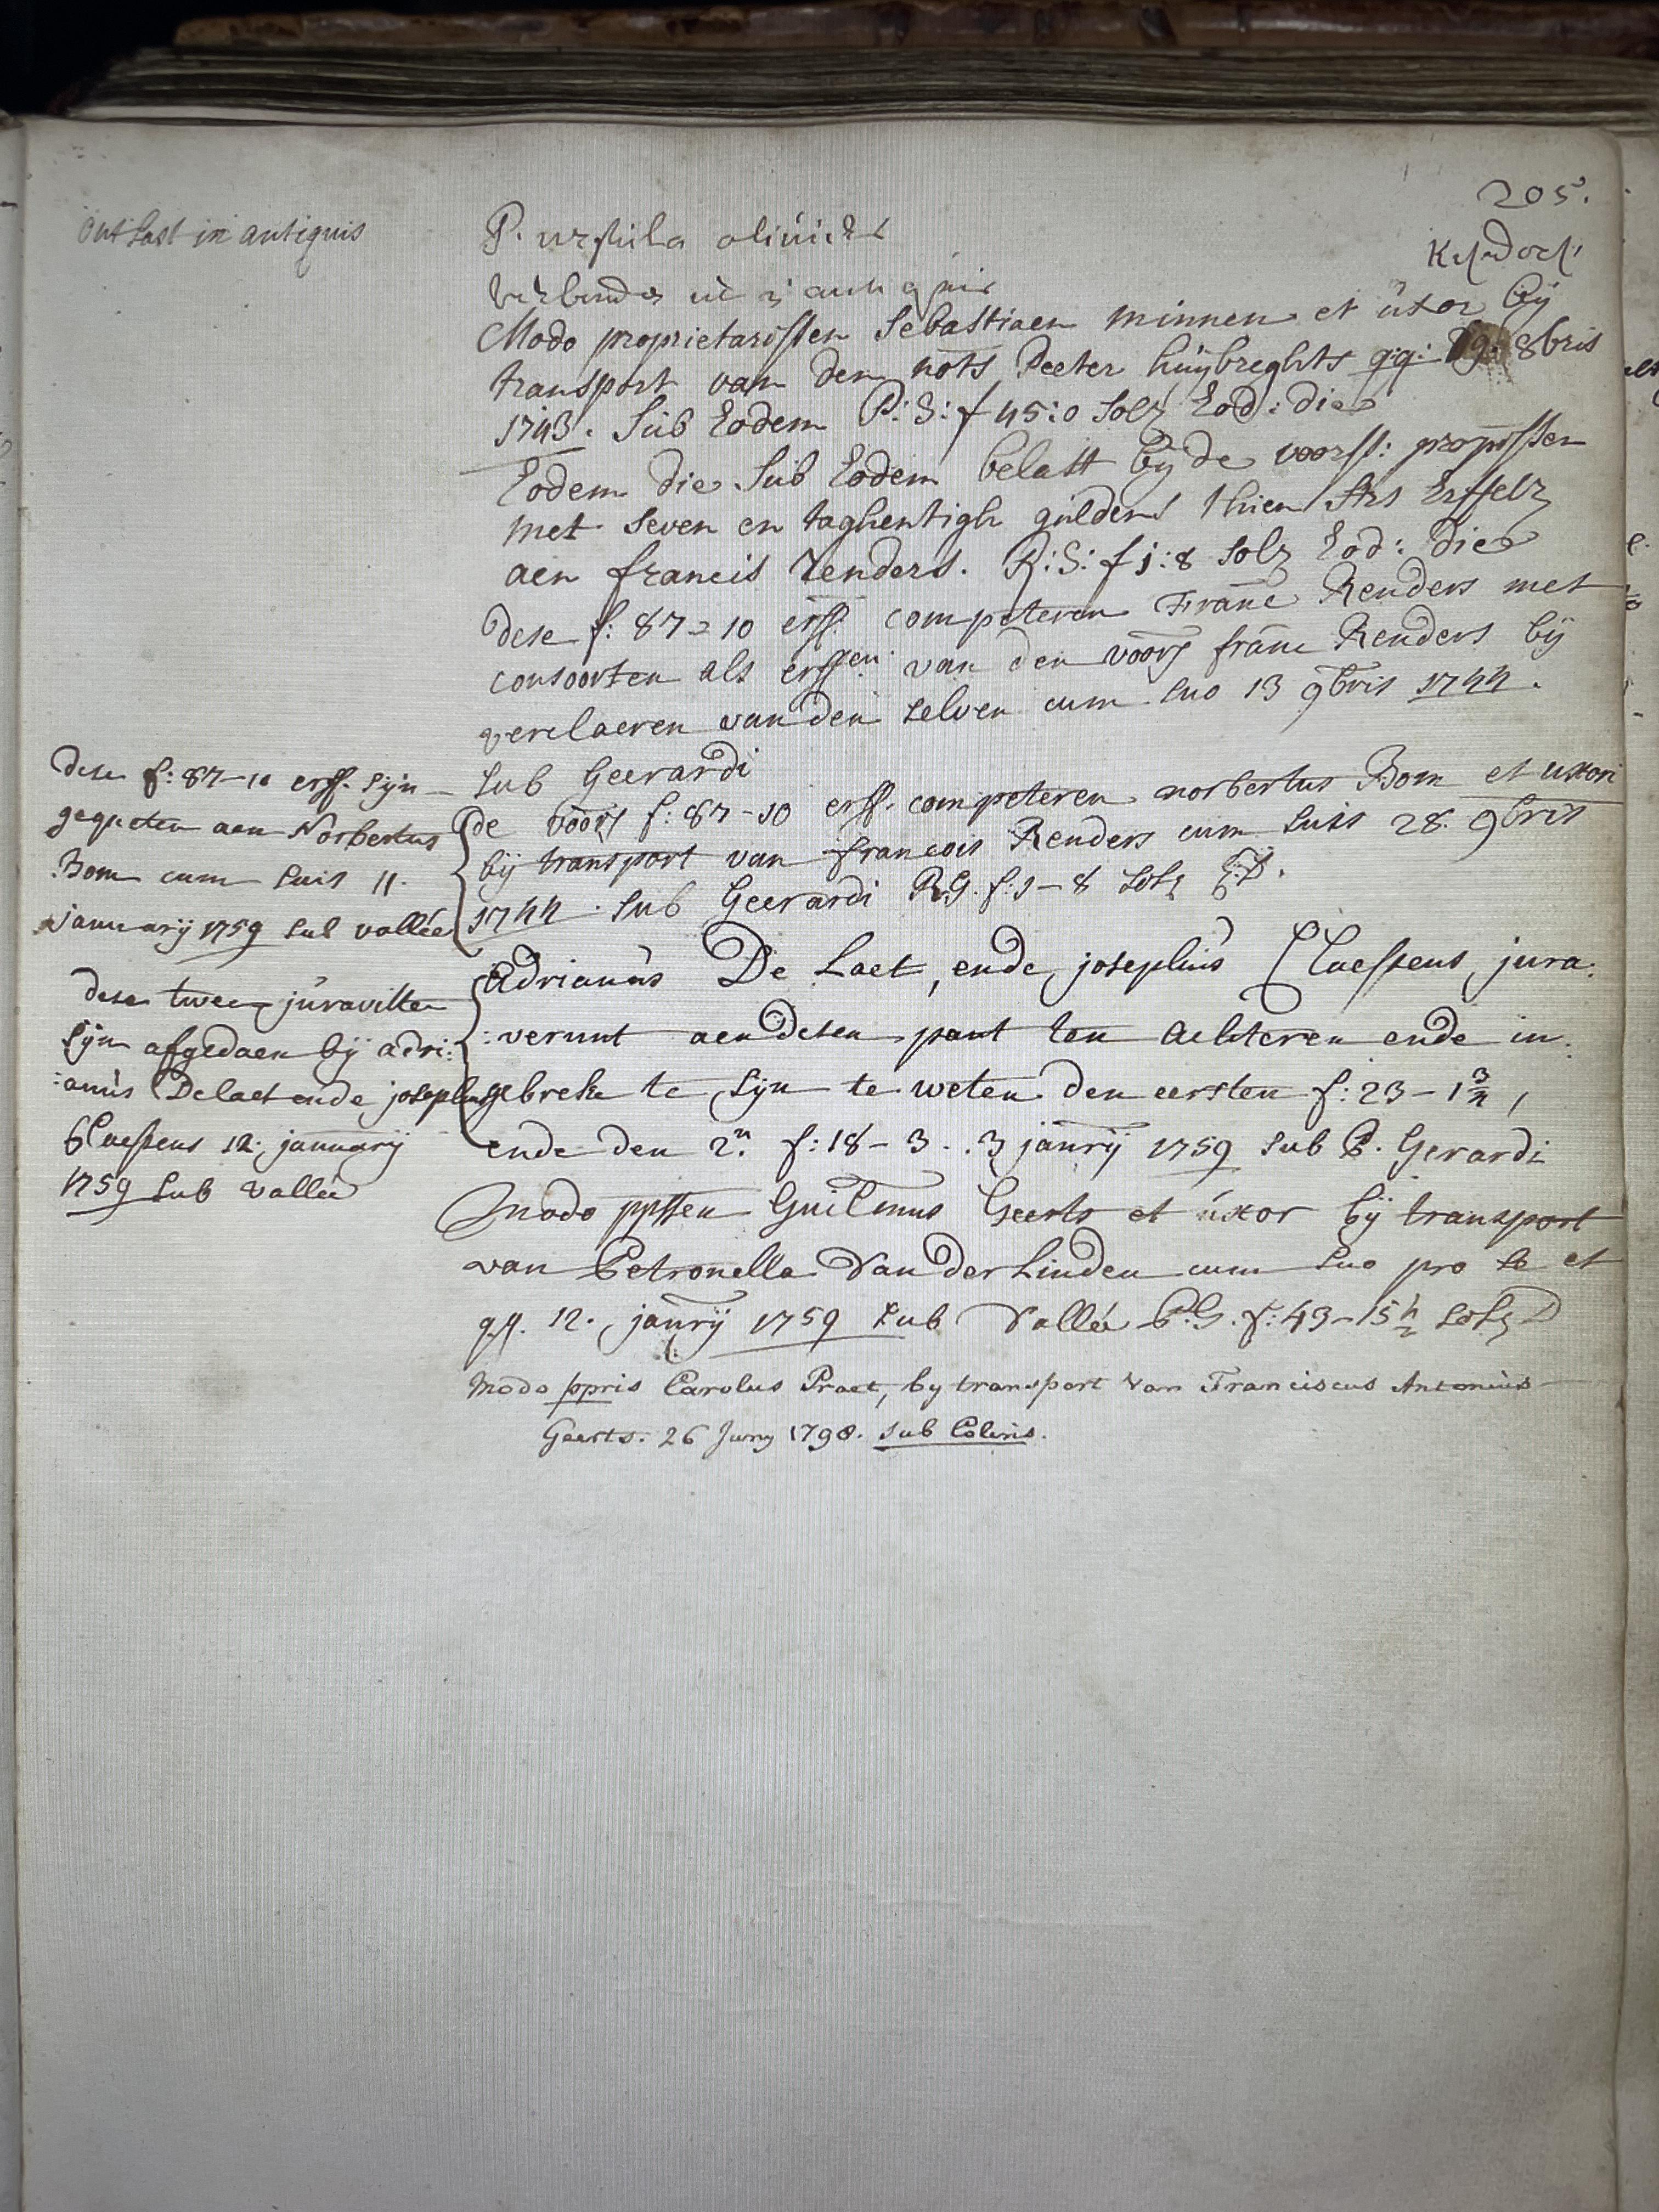 205.
ontlast in antiquis
P. ursula
Modo proprietarissen Sebastiaen minnen et uxor bij
transport van den nots Peeter huijbreghts q:q: 8bris
1743. Sub Eodem P:S: f 45:0 Solz Eod: die
Eodem die Sub Eodem belast bij de voorss: propissen
met seven en taghentigh guldens thien strs Erffelz
aen francis Renders. R:S: f 1:8 Solz Eod: die
dese f: 87=10 erff. competeren Franc Renders met
consoorten als erffgen. van den voors franc Renders bij
verclaeren van den selven cum suo 13 9bris 1744.
sub Geerardi
de voors f: 87-10 erff. competeren norbertus Bom et uxori
bij transport van francois Renders cum suis 28. 9bris
1744. sub Geerardi R.G. f: 1-8 Solz E:D.
dese f: 87-10 erff. sijn
gequeten aen Norbertus
Bom cum suis 11.
januarij 1759 sub vallée
Adrianus De Laet, ende josephus Claessens jura:
:verunt aen desen pant ten achteren ende in:
gebreke te sijn te weten den eersten f: 23-1¾,
ende den 2n. f: 18-3.. 3 janrij 1759 sub P. Gerardi
dese twee juravitten
sijn afgedaen bij adri:
:anus Delaet ende josephus
Claessens 12. januarij
1759 sub vallée
Modo ppssen Guilmus Geerts et uxor bij transport
van Petronella Van der Linden cum suo pro se et
q.q. 12. janrij 1759 sub Vallée P.G. f: 43-15 Solz D
Modo ppris Carolus Praet, by transport van Franciscus Antonius
Geerts. 26 Juny 1798. sub Colins.